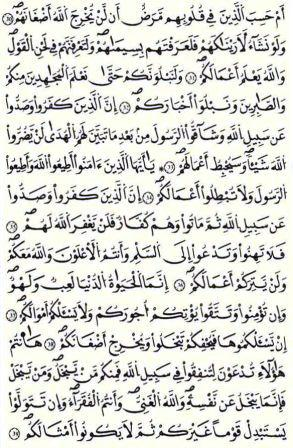 أَمْ حَسِبَ الَّذِينَ فِي قُلُوبِهِم مَّرَضٌ أَن لَّنْ يُخْرِجَ اللَّهُ أَضْغَانَهُمْ
وَلَوْ نَشَاءُ لَأَرَيْنَاكَهُمْ فَلَعَرَفْتَهُم بِسِيمَاهُمْ وَلَتَعْرِفَنَّهُمْ فِي لَحْنِ الْقَوْلِ
وَاللَّهُ يَعْلَمُ أَعْمَالَكُمْ وَلَنَبْلُوَنَّكُمْ حَتَّى نَعْلَمَ الْمُجَاهِدِينَ مِنكُمْ
وَالصَّابِرِينَ وَنَبْلُوَا أَخْبَارَكُمْ إِنَّ الَّذِينَ كَفَرُوا وَصَدُّوا
عَن سَبِيلِ اللَّهِ وَشَاقُّوا الرَّسُولَ مِن بَعْدِ مَا تَبَيَّنَ لَهُمُ الْهُدَى لَنْ يَضُرُّوا
اللَّهَ شَيْئًا وَسَيُحْبِطُ أَعْمَالَهُمْ يَا أَيُّهَا الَّذِينَ ءَامَنُوا أَطِيعُوا اللَّهَ وَأَطِيعُوا
الرَّسُولَ وَلَا تُبْطِلُوا أَعْمَالَكُمْ إِنَّ الَّذِينَ كَفَرُوا وَصَدُّوا
عَن سَبِيلِ اللَّهِ ثُمَّ مَاتُوا وَهُمْ كُفَّارٌ فَلَنْ يَغْفِرَ اللَّهُ لَهُمْ
فَلَا تَهِنُوا وَتَدْعُوا إِلَى السَّلْمِ وَأَنتُمُ الْأَعْلَوْنَ وَاللَّهُ مَعَكُمْ
وَلَنْ يَتِرَكُمْ أَعْمَالَكُمْ إِنَّمَا الْحَيَاةُ الدُّنْيَا لَعِبٌ وَلَهْوٌ
وَإِن تُؤْمِنُوا وَتَتَّقُوا يُؤْتِكُمْ أُجُورَكُمْ وَلَا يَسْئَلْكُمْ أَمْوَالَكُمْ
إِنْ يَسْئَلْكُمُوهَا فَيُحْفِكُمْ تَبْخَلُوا وَيُخْرِجْ أَضْغَانَكُمْ هَا أَنتُمْ
هَؤُلَاءِ تُدْعَوْنَ لِتُنفِقُوا فِي سَبِيلِ اللَّهِ فَمِنكُم مَّنْ يَبْخَلُ وَمَنْ يَبْخَلْ
فَإِنَّمَا يَبْخَلُ عَن نَّفْسِهِ وَاللَّهُ الْغَنِيُّ وَأَنتُمُ الْفُقَرَاءُ وَإِن تَتَوَلَّوْا
يَسْتَبْدِلْ قَوْمًا غَيْرَكُمْ ثُمَّ لَا يَكُونُوا أَمْثَالَكُمْ